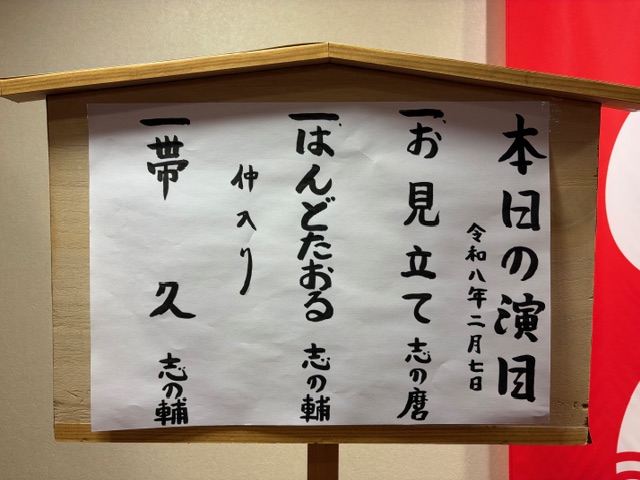 本日の演目
令和八年二月七日
一お見立て 志の麿
一ばんどたおる 志の輔
仲入り
一帯久 志の輔